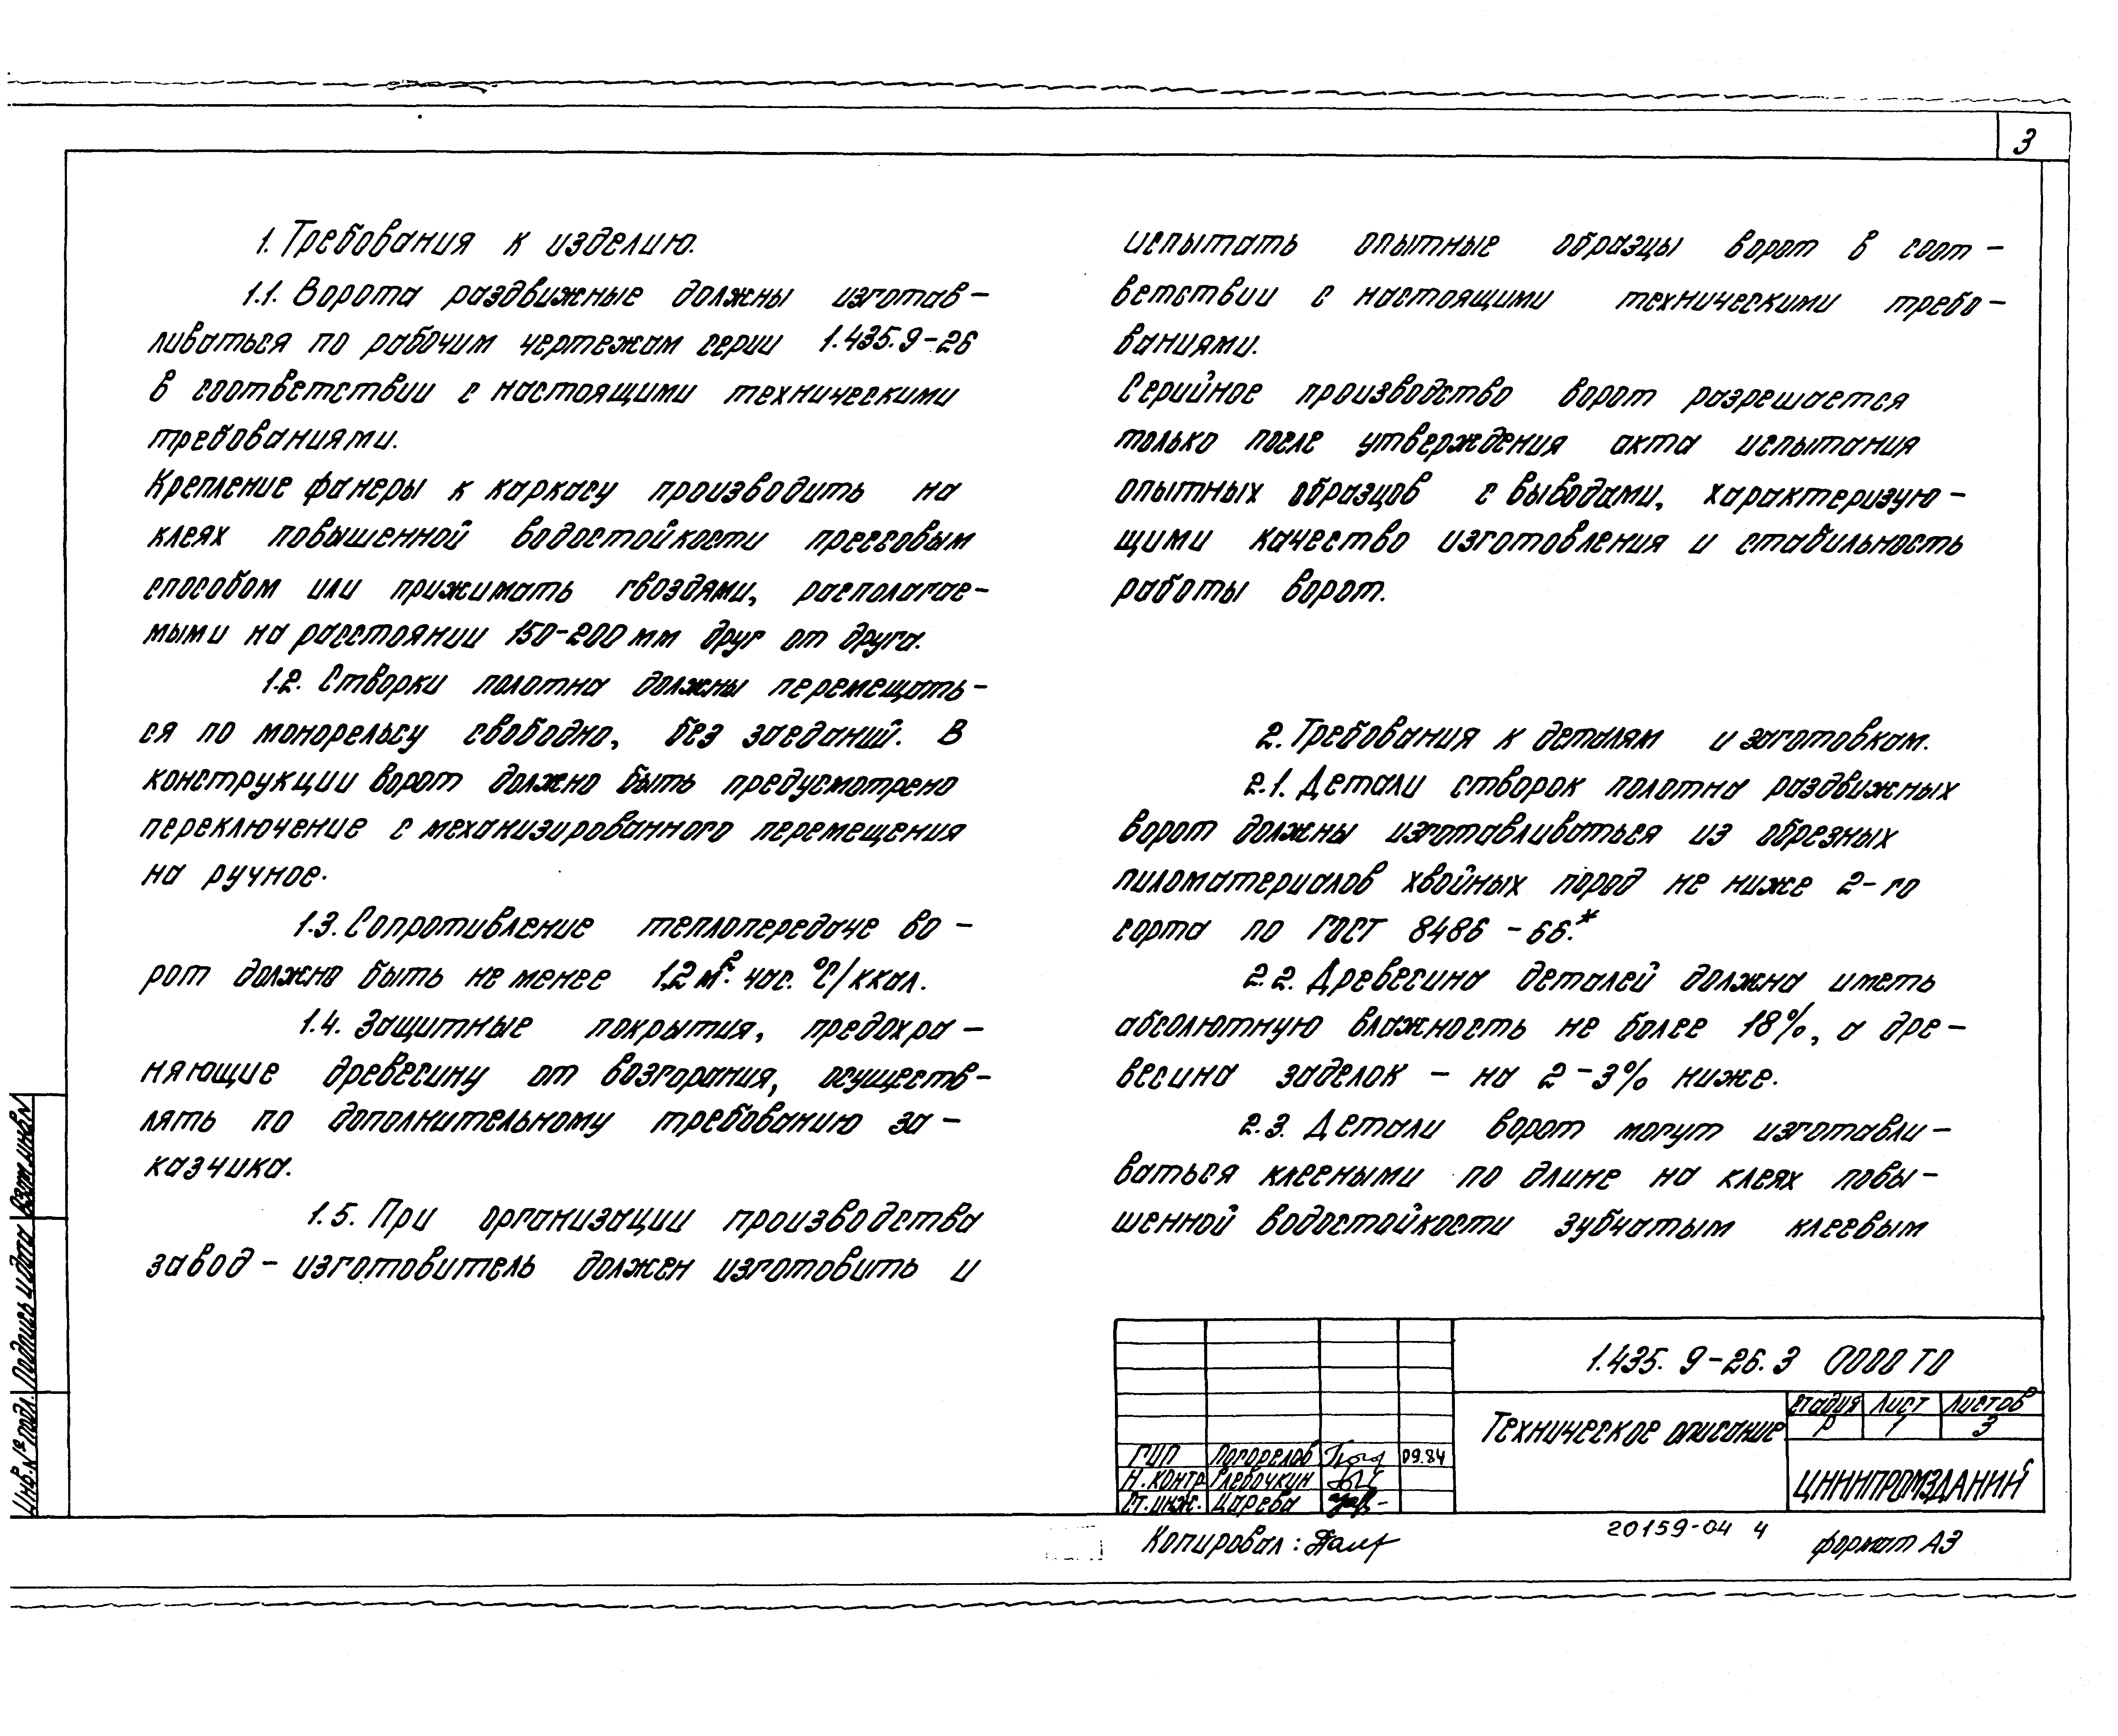 3
1. Требования к изделию.
1.1. Ворота раздвижные должны изготав-
ливаться по рабочим чертежам серии 1.435.9-26
в соответствии с настоящими техническими
требованиями.
Крепление фанеры к каркасу производить на
клеях повышенной водостойкости прессовым
способом или прижимать гвоздями, располагае-
мыми на расстоянии 150-200 мм друг от друга.
1.2. Створки полотна должны перемещать-
ся по монорельсу свободно, без заеданий. В
конструкции ворот должно быть предусмотрено
переключение с механизированного перемещения
на ручное.
1.3. Сопротивление теплопередаче во-
рот должно быть не менее 1,2 м². час. °С/ккал.
1.4. Защитные покрытия, предохра-
няющие древесину от возгорания, осуществ-
лять по дополнительному требованию за-
казчика.
1.5. При организации производства
завод-изготовитель должен изготовить и
испытать опытные образцы ворот в соот-
ветствии с настоящими техническими требо-
ваниями.
Серийное производство ворот разрешается
только после утверждения акта испытания
опытных образцов с выводами, характеризую-
щими качество изготовления и стабильность
работы ворот.
2. Требования к деталям и заготовкам.
2.1. Детали створок полотна раздвижных
ворот должны изготавливаться из обрезных
пиломатериалов хвойных пород не ниже 2-го
сорта по ГОСТ 8486-66.*
2.2. Древесина деталей должна иметь
абсолютную влажность не более 18%, а дре-
весина заделок - на 2-3% ниже.
2.3. Детали ворот могут изготавли-
ваться клееными по длине на клеях повы-
шенной водостойкости зубчатым клеевым
1.435.9-26.3 0000 ТО
Техническое описание
Стадия Лист Листов
Р 1 3
ЦНИИПРОМЗДАНИЙ
ГИП Погорелов 09.84
Н.контр Глебочкин
Ст.инж. Царева
Копировал:
20159-04 4
формат А3
Инв.№подл. Подпись и дата Взам.инв№